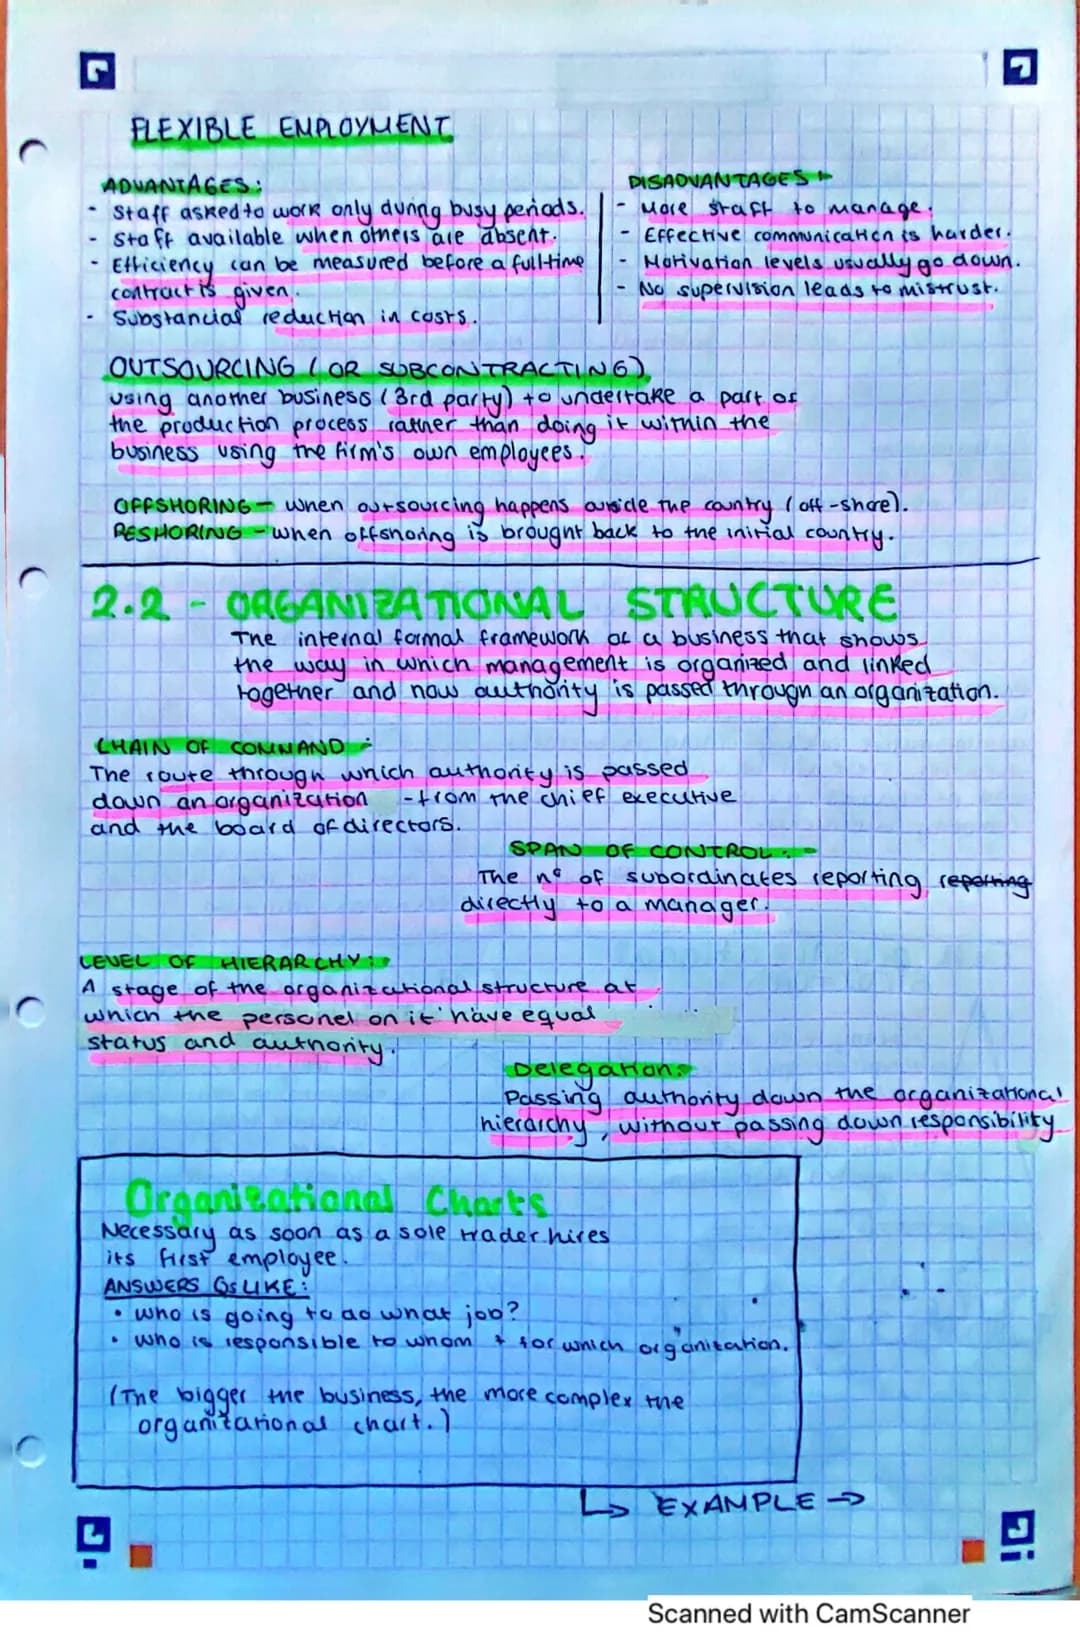 FLEXIBLE EMPLOYMENT
ADVANTAGES:
- Staff asked to work only during busy periods.
- Staff available when others are absent.
- Efficiency can be measured before a full-time
contract is given.
- Substancial reduction in costs.
DISADVANTAGES:
- More staff to manage.
- Effective communication is harder.
- Motivation levels usually go down.
- No supervision leads to mistrust.
OUTSOURCING (OR SUBCONTRACTING)
using another business (3rd party) to undertake a part of
the production process rather than doing it within the
business using the firm's own employees.
OFFSHORING - when outsourcing happens outside the country (off-shore).
RESHORING - when offshoring is brought back to the initial country.
2.2 - ORGANIZATIONAL STRUCTURE
The internal formal framework of a business that shows
the way in which management is organized and linked
together and how authority is passed through an organization.
CHAIN OF COMMAND:
The route through which authority is passed
down an organization - from the chief executive
and the board of directors.
SPAN OF CONTROL:
The nº of subordinates reporting reporting
directly to a manager.
LEVEL OF HIERARCHY:
A stage of the organizational structure at
which the personel on it have equal
status and authority.
Delegation:
Passing authority down the organizational
hierarchy, without passing down responsibility
Organizational Charts
Necessary as soon as a sole trader hires
its first employee.
ANSWERS Qs LIKE:
• who is going to do what job?
• who is responsible to whom + for which organization.
(The bigger the business, the more complex the
organizational chart.)
↳ EXAMPLE →
Scanned with CamScanner